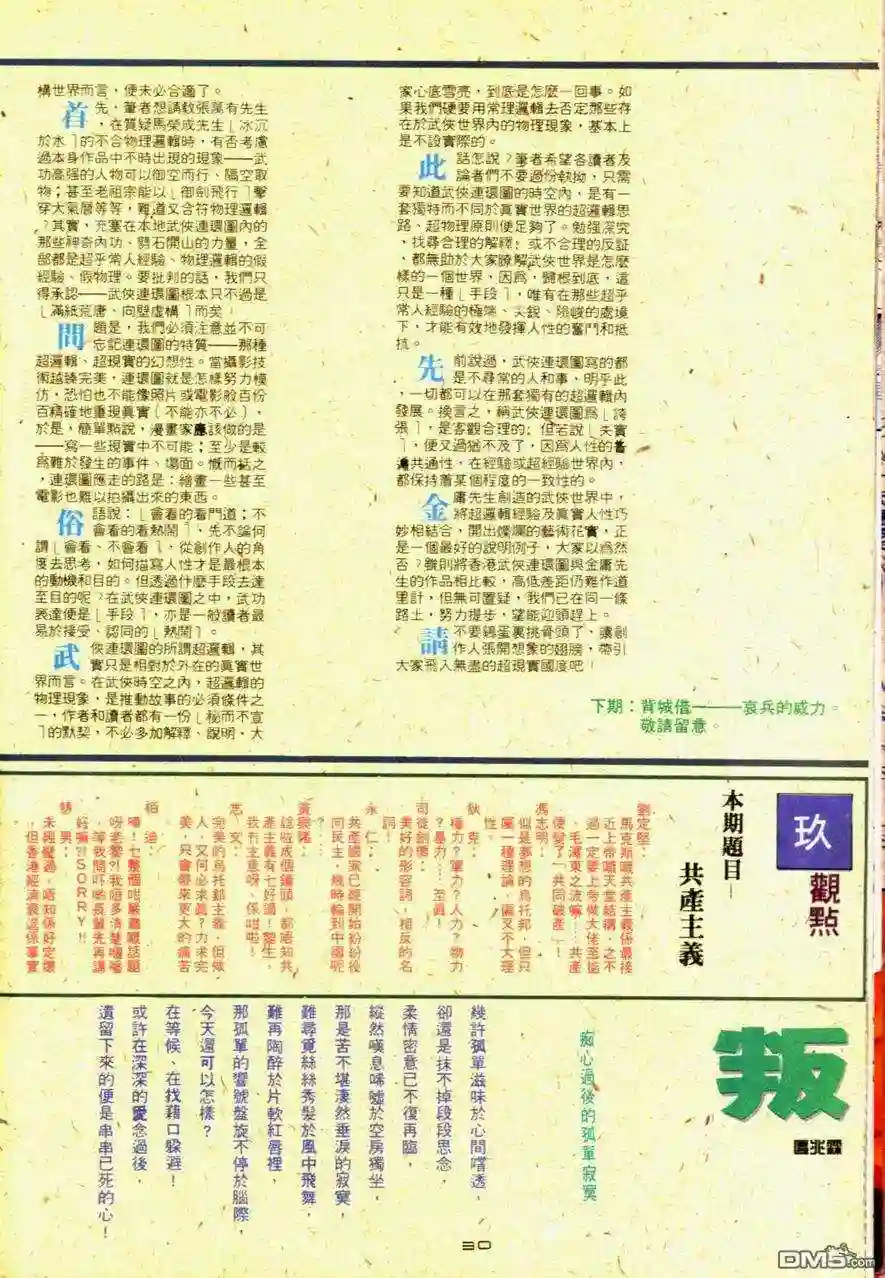 構世界而言，便未必合適了。
首先，筆者想請教張萬有先生
，在質疑馬榮成先生﹝冰沉
於水﹞的不合物理邏輯時，有否考慮
過本身作品中不時出現的現象——武
功高强的人物可以御空而行、隔空取
物；甚至老祖宗能以﹝御劍飛行﹞擊
穿大氣層等等，難道又合符物理邏輯
？其實，充塞在本地武俠連環圖內的
那些神奇內功、闢石開山的力量，全
部都是超乎常人經驗、物理邏輯的假
經驗、假物理。要批判的話，我們只
得承認——武俠連環圖根本只不過是
﹝滿紙荒唐、向壁虛構﹞而矣！
問題是，我們必須注意並不可
忘記連環圖的特質——那種
超邏輯、超現實的幻想性。當攝影技
術越臻完美，連環圖就是怎樣努力模
仿，恐怕也不能像照片或電影般百份
百精確地重現真實（不能亦不必），
於是，簡單點說，漫畫家應該做的是
——寫一些現實中不可能；至少是較
爲難於發生的事件、場面。慨而括之
，連環圖應走的路是：繪畫一些甚至
電影也難以拍攝出來的東西。
俗語說：﹝會看的看門道；不
會看的看熱鬧﹞，先不論何
謂﹝會看、不會看﹞，從創作人的角
度去思考，如何描寫人性才是最根本
的動機和目的。但透過什麼手段去達
至目的呢？在武俠連環圖之中，武功
表達便是﹝手段﹞，亦是一般讀者最
易於接受、認同的﹝熱鬧﹞。
武俠連環圖的所謂超邏輯，其
實只是相對於外在的真實世
界而言。在武俠時空之內，超邏輯的
物理現象，是推動故事的必須條件之
一，作者和讀者都有一份﹝秘而不宣
﹞的默契，不必多加解釋、說明、大
家心底雪亮，到底是怎麼一回事。如
果我們硬要用常理邏輯去否定那些存
在於武俠世界內的物理現象，基本上
是不設實際的。
此話怎說？筆者希望各讀者及
論者們不要過份執拗，只需
要知道武俠連環圖的時空內，是有一
套獨特而不同於真實世界的超邏輯思
路、超物理原則便足夠了。勉强深究
、找尋合理的解釋；或不合理的反証
，都無助於大家瞭解武俠世界是怎麼
樣的一個世界，因爲，歸根到底，這
只是一種﹝手段﹞，唯有在那些超乎
常人經驗的極端、尖銳、險峻的處境
下，才能有效地發揮人性的奮鬥和抵
抗。
先前說過，武俠連環圖寫的都
是不尋常的人和事，明乎此
，一切都可以在那套獨有的超邏輯內
發展。換言之，稱武俠連環圖爲﹝誇
張﹞，是客觀合理的；但若說﹝失實
﹞，便又過猶不及了，因爲人性的普
遍共通性，在經驗或超經驗世界內，
都保持着某個程度的一致性的。
金庸先生創造的武俠世界中，
將超邏輯經驗及真實人性巧
妙相結合，開出燦爛的藝術花實，正
是一個最好的說明例子，大家以爲然
否？雖則將香港武俠連環圖與金庸先
生的作品相比較，高低差距仍難作道
里計，但無可置疑，我們已在同一條
路上，努力提步，望能迎頭趕上。
請不要鷄蛋裏挑骨頭了、讓創
作人張開想象的翅膀，帶引
大家飛入無盡的超現實國度吧！
下期：背城借一——哀兵的威力。
敬請留意。
玖
觀點
本期題目—
共產主義
劉定堅：
馬克斯嘅共產主義係最接
近上帝嘅天堂結構，之不
過一定要上帝做大佬至搵
，毛澤東之流嘛！…共產
便變了「共同破產」！
馮志明：
似是夢想的烏托邦，但只
屬一種理論，圖又不大理
性。
狄克：
權力？軍力？人力？物力
？暴力……至真！
司徒劍僑：
美好的形容詞，相反的名
詞！
永仁：
共產國家已經開始紛紛復
回民主，幾時輪到中國呢
？…
黃榮隆：
諗啦成個鐘頭，都唔知共
產主義有七好講！黎生，
我冇主意呀，係咁啦！
志文：
完美的烏托邦主義，但做
人，又何必求真？力求完
美，只會帶來更大的痛苦
柏迪：
嘩！乜整個咁嚴肅嘅話題
呀老黎？我唔多清楚嗰噃
，等我問吓啲長輩先再講
好嘛？SORRY!!
慧男：
未經歷過，唔知係好定壞
，但香港經濟衰退係事實
叛
馮兆霖
痴心過後的孤單寂寞
幾許孤單滋味於心間嚐透，
卻還是抹不掉段段思念，
柔情密意已不復再臨，
縱然嘆息唏噓於空房獨坐，
那是苦不堪淒然垂淚的寂寞，
難尋覓絲絲秀髮於風中飛舞，
難再陶醉於片軟紅唇裡，
那孤單的響號盤旋不停於腦際，
今天還可以怎樣？
在等候、在找藉口躲避！
或許在深深的愛念過後，
遺留下來的便是串串已死的心！
30
DM5.com